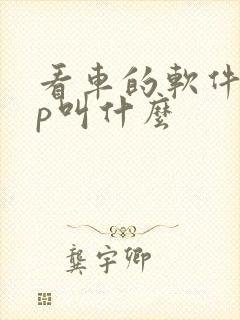 看車的軟件
p叫什麼
龔宇卿